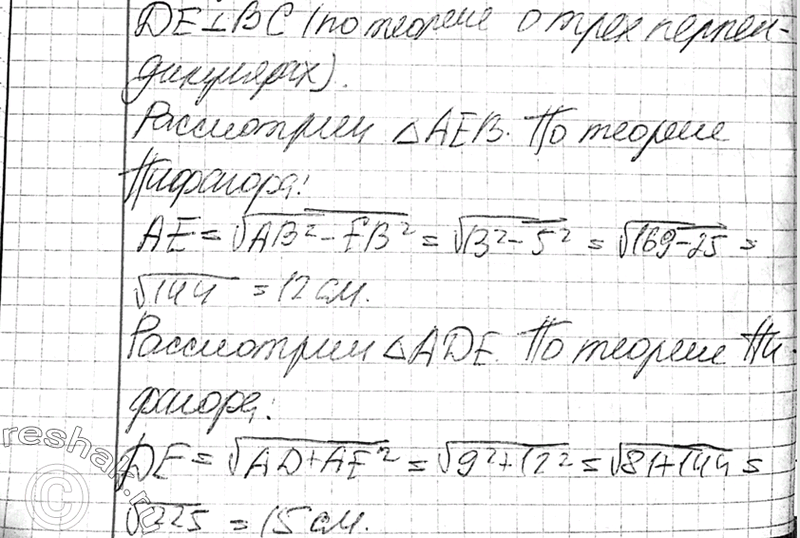 DE⊥BC (по теореме о трех перпен-
дикулярах).
Рассмотрим △AEB. По теореме
Пифагора:
AE = √AB² - EB² = √13² - 5² = √169-25 =
√144 = 12 см.
Рассмотрим △ADE. По теореме Пи-
фагора:
DE = √AD+AE² = √9²+12² = √81+144 =
√225 = 15 см.
reshak.ru
©